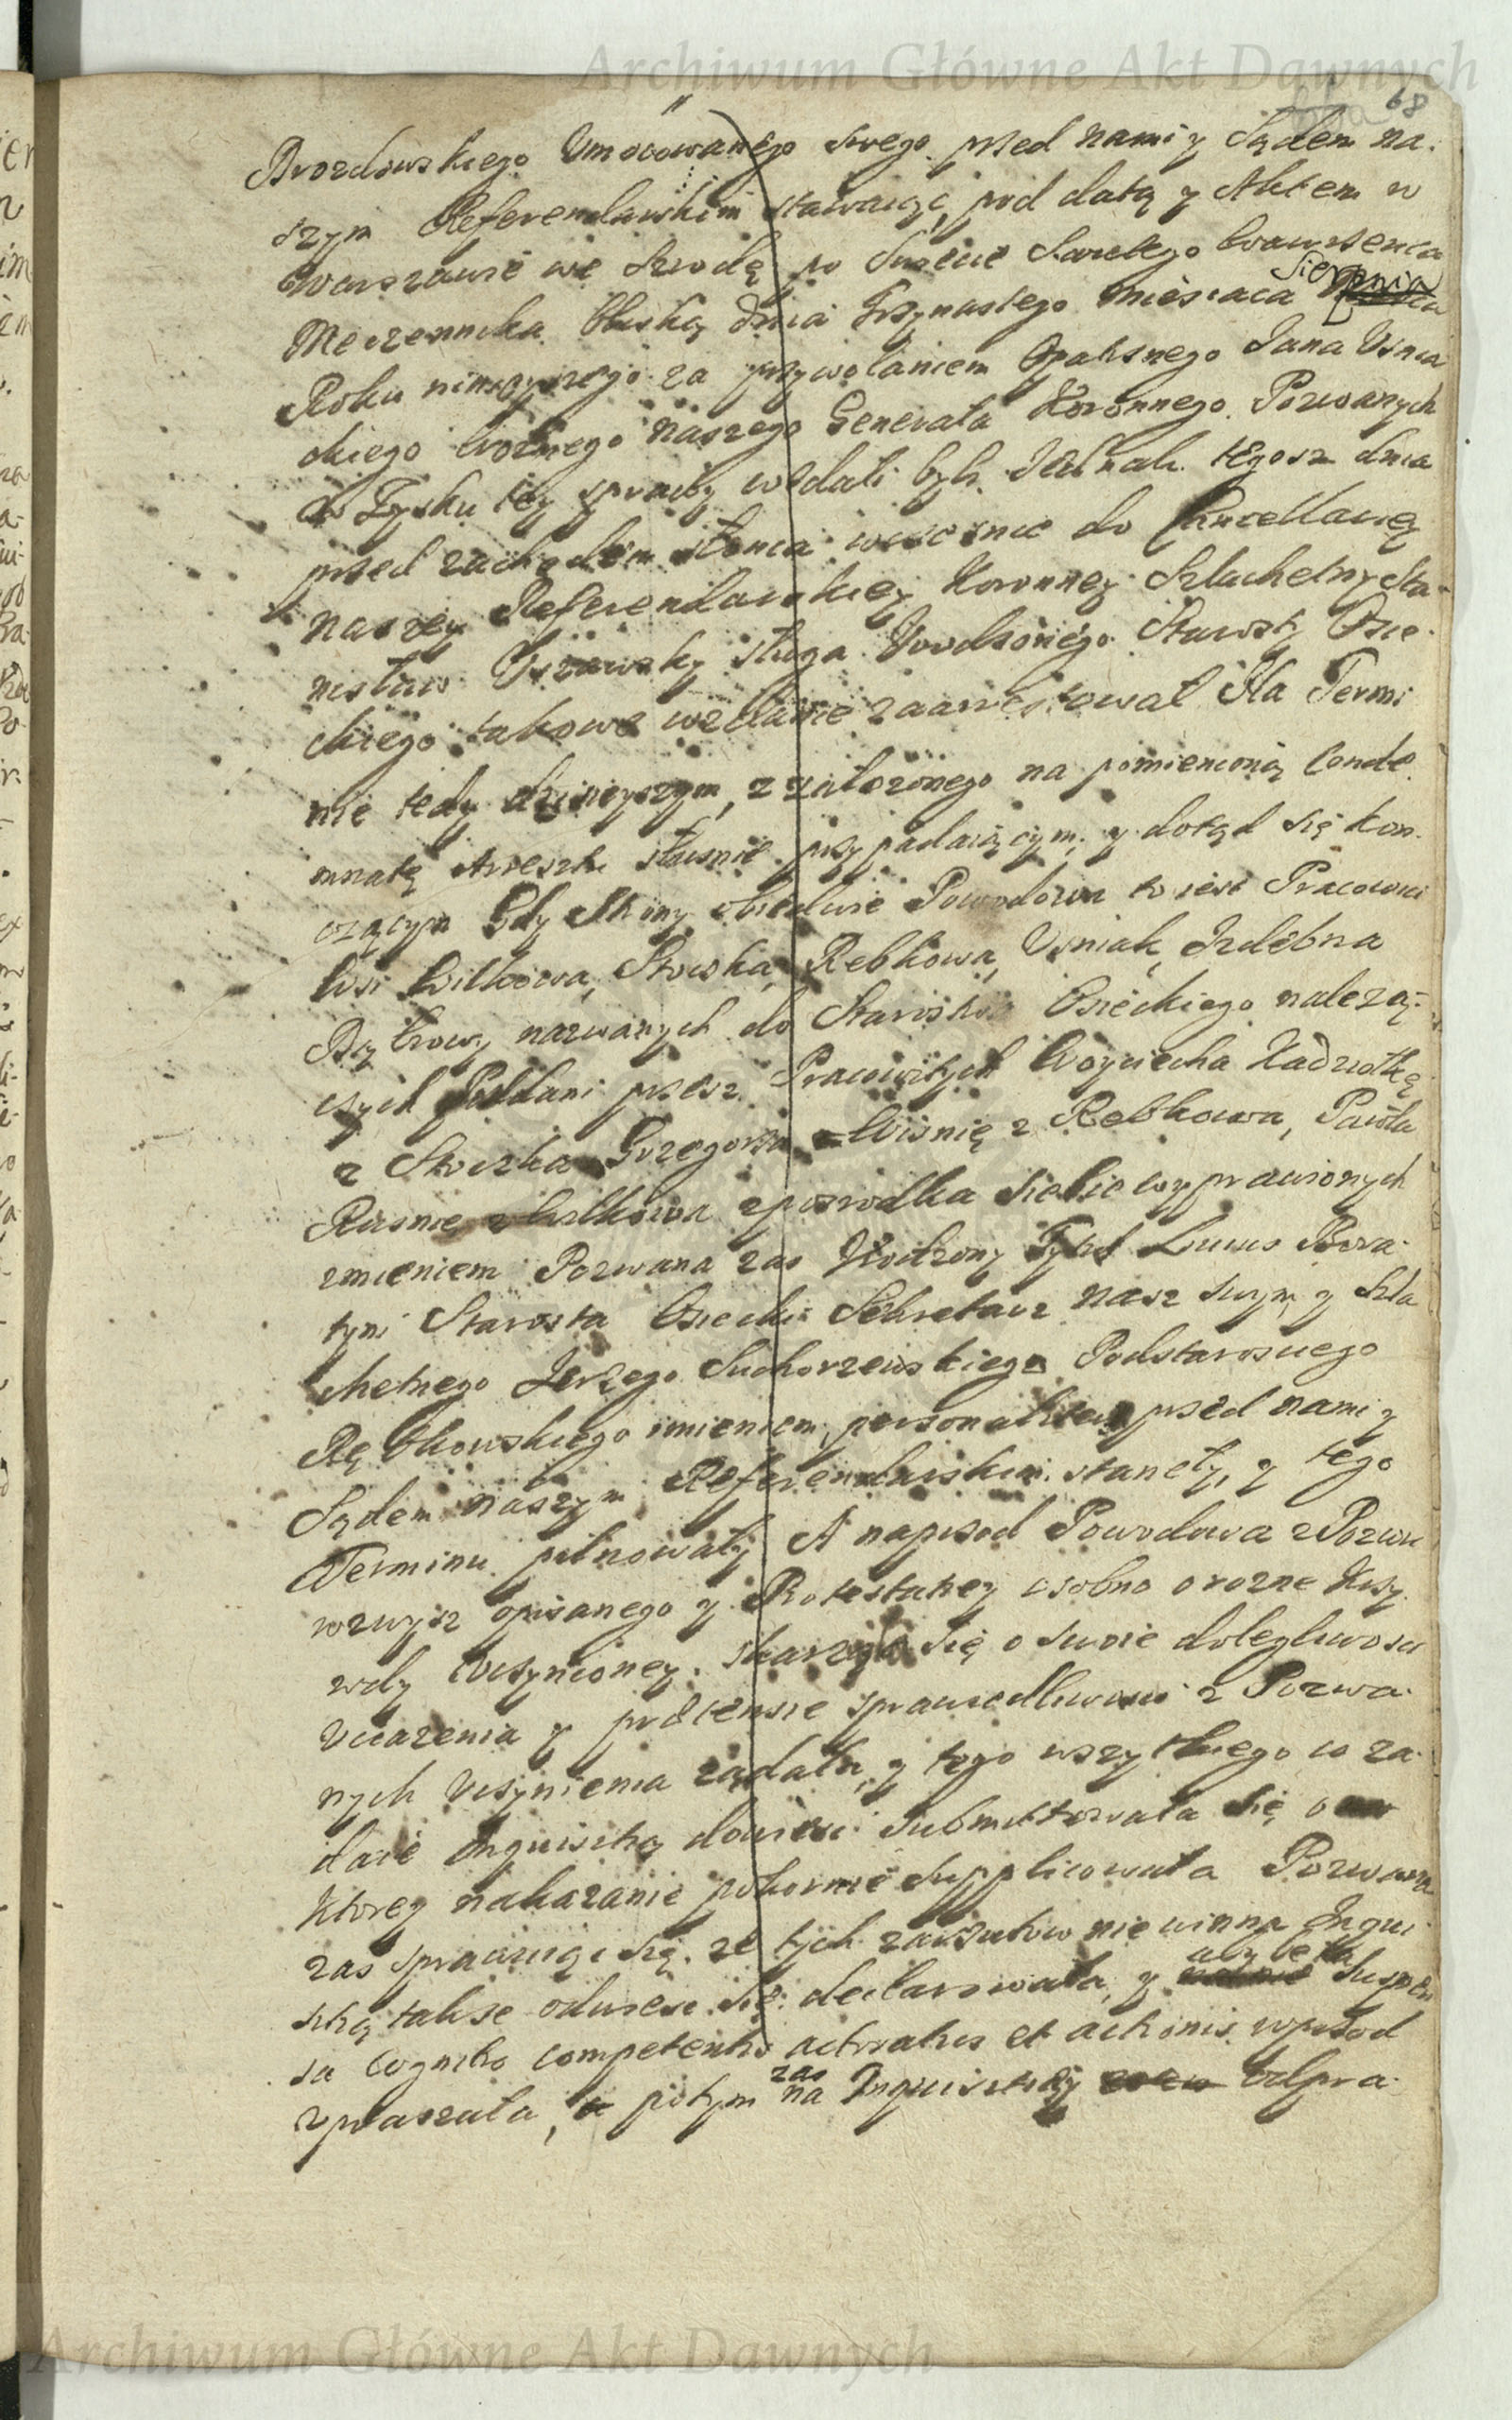 Archiwum Główne Akt Dawnych
68
Drozdowskiego Umocowanego swego przed nami y Sądem na-
szym Referendarskim stawaiąc, pod datą y Aktem w
Warszawie we Srzodę po Święcie Swiętego Wawrzenca
Męczennika bliską dnia trzynastego miesiaca Sierpnia
Roku ninieyszego za przywołaniem Opatrznego Jana Usnia
ckiego Woznego naszego Generała Koronnego Pozwanych
w Zysku tey sprawy wzdali byli. Jednak tegosz dnia
przed zachodem słonca wczesnie do Cancellaryi
naszey Referendarskiey Koronney Szlachetny Sta-
nisław sługa Urodzonego Starosty Osie-
ckiego takowe wzdanie zaarrestował Na Termi
nie tedy dzisieyszym, z załozonego na pomienioną Conde-
mnatę Aresztu słusznie przypadaiącym, y dotąd się kon-
czącym Gdy Strony obiedwie Powodowa to iest Pracowici
Wsi Wilkowa, Stoczka, Rebkowa, Usniak, Izdebna
nazwanych do Starostwa Osieckiego nalezą-
cych Poddani przesz Pracowitych Woyciecha Kadziołkę
z Stoczka Grzegorza Wisnię z Rebkowa, Pawła
Rusnię z Wilkowa zposrodka siebie wyprawionych
imieniem Pozwana zas Urodzony Tytus Liwius Bora-
tyni Starosta Osiecki Sekretarz nasz swym y Szla
chetnego Jerzego Suchorzewskiego Podstarosciego
Rębkowskiego imieniem, personaliter przed nami y
Sądem naszym Referendarskim stanęły, y tego
Terminu pilnowały A naprzod Powodowa z Pozwu
wzwysz opisanego y Protestacyi osobno o rozne Krzy-
wdy uczynioney skarząc się o swoie dolegliwosci
Uciązenia y praetensie sprawiedliwosci z Pozwa-
nych uczynienia ządała, y tego wszytkiego co za-
daie Inquisitią dowiesc submittowała się o
ktorey nakazanie pokornie supplicowała Pozwana
zas sprawuiąc się ze tych zarzutow niewinna Inqui-
sitią takze odwiesc się declarowała, y aby była suspen
sa cognitio competentis actoratus et actionis wprzod
upraszała, a potym zas na Inquisitią
Archiwum Główne Akt Dawnych